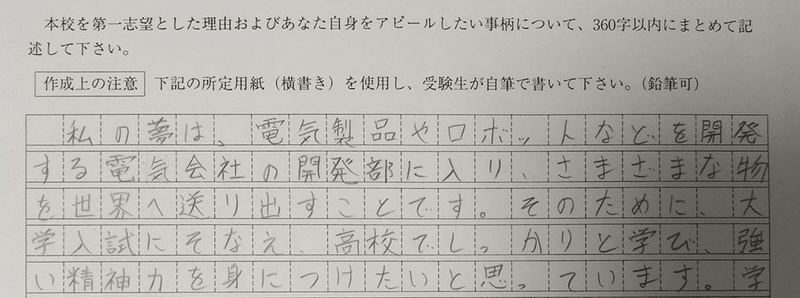 本校を第一志望とした理由およびあなた自身をアピールしたい事柄について、360字以内にまとめて記
述して下さい。
作成上の注意 下記の所定用紙（横書き）を使用し、受験生が自筆で書いて下さい。（鉛筆可）
私の夢は、電気製品やロボットなどを開発
する電気会社の開発部に入り、さまざまな物
を世界へ送り出すことです。そのために、大
学入試にそなえ、高校でしっかりと学び、強
い精神力を身につけたいと思っています。学